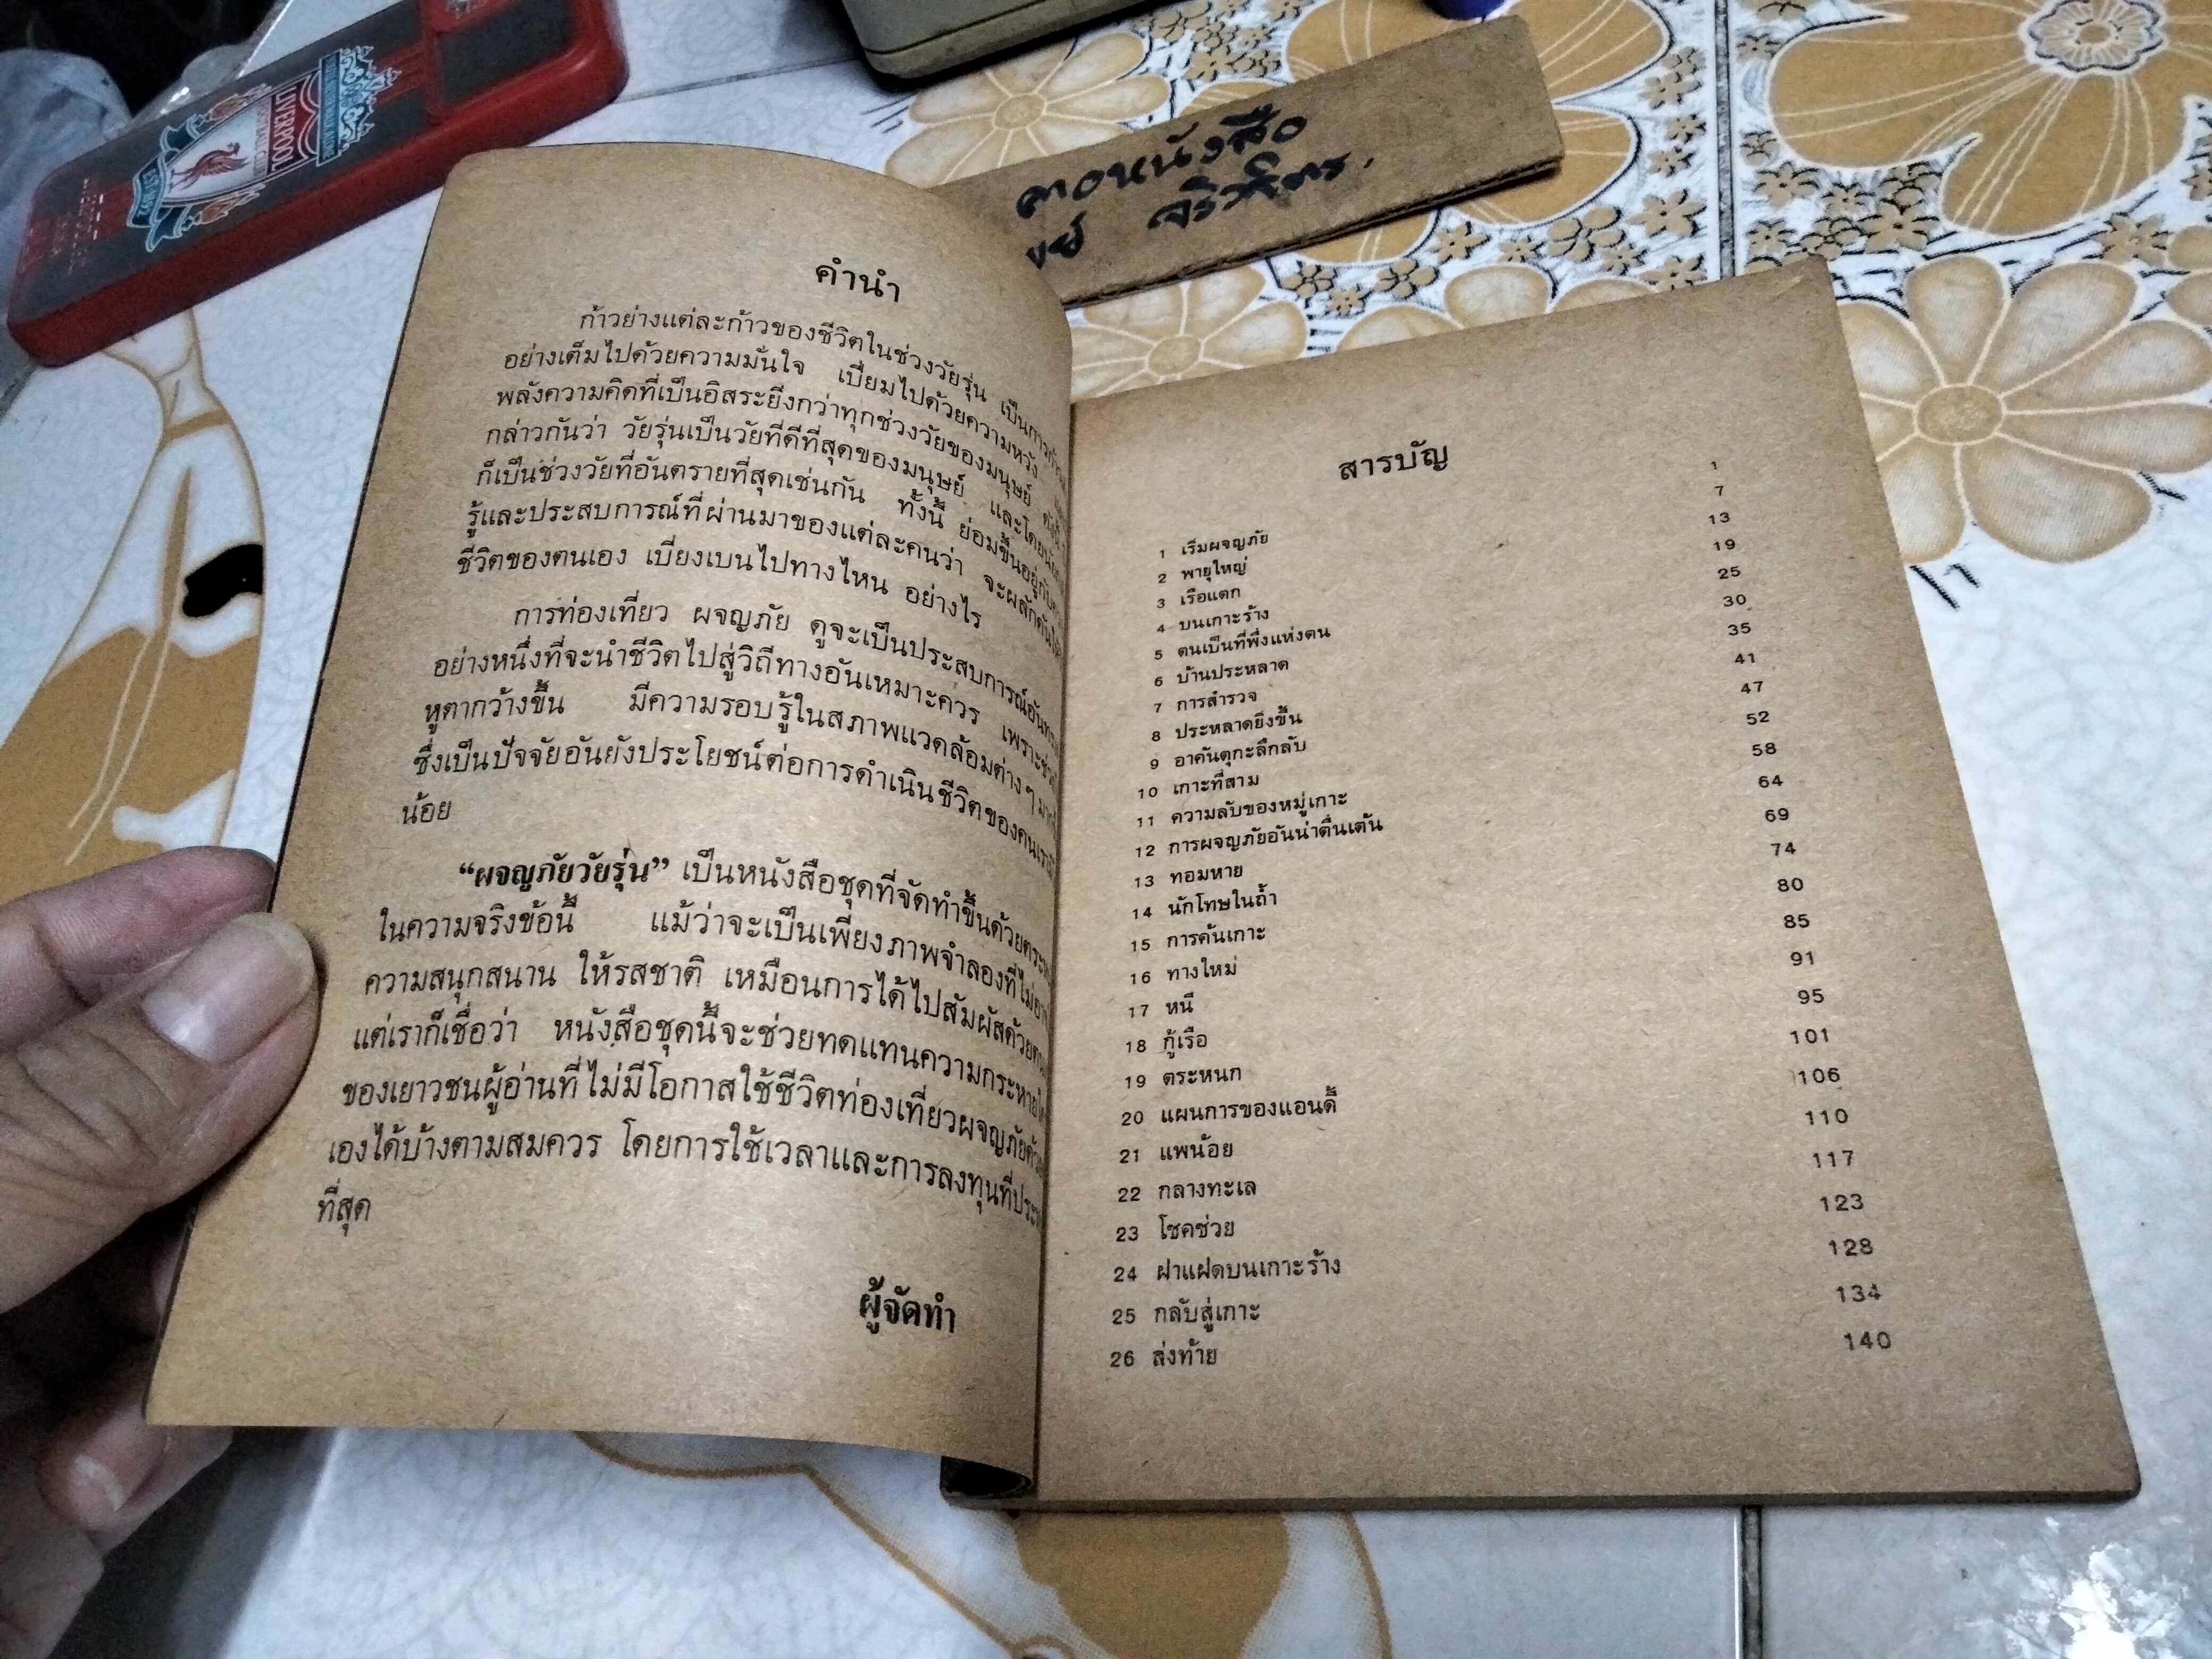 LIVERPOOL
EST·1892
คอหนังสือ
คำนำ
ก้าวย่างแต่ละก้าวของชีวิตในช่วงวัยรุ่น เป็นการ
อย่างเต็มไปด้วยความมั่นใจ เปี่ยมไปด้วยความหวัง
พลังความคิดที่เป็นอิสระยิ่งกว่าทุกช่วงวัยของมนุษย์
กล่าวกันว่า วัยรุ่นเป็นวัยที่ดีที่สุดของมนุษย์ และโดย
ก็เป็นช่วงวัยที่อันตรายที่สุดเช่นกัน ทั้งนี้ ย่อมขึ้นอยู่กับ
รู้และประสบการณ์ที่ผ่านมาของแต่ละคนว่า จะผลักดัน
ชีวิตของตนเอง เบี่ยงเบนไปทางไหน อย่างไร
การท่องเที่ยว ผจญภัย ดูจะเป็นประสบการณ์
อย่างหนึ่งที่จะนำชีวิตไปสู่วิถีทางอันเหมาะควร เพราะ
หูตากว้างขึ้น มีความรอบรู้ในสภาพแวดล้อมต่างๆ
ซึ่งเป็นปัจจัยอันยังประโยชน์ต่อการดำเนินชีวิตของคนเรา
น้อย
“ผจญภัยวัยรุ่น” เป็นหนังสือชุดที่จัดทำขึ้นด้วย
ในความจริงข้อนี้ แม้ว่าจะเป็นเพียงภาพจำลองที่ไม่
ความสนุกสนาน ให้รสชาติ เหมือนการได้ไปสัมผัสด้วย
แต่เราก็เชื่อว่า หนังสือชุดนี้จะช่วยทดแทนความกระหาย
ของเยาวชนผู้อ่านที่ไม่มีโอกาสใช้ชีวิตท่องเที่ยวผจญภัย
เองได้บ้างตามสมควร โดยการใช้เวลาและการลงทุนที่
ที่สุด
ผู้จัดทำ
สารบัญ
1 เริ่มผจญภัย 1
2 พายุใหญ่ 7
3 เรือแตก 13
4 บนเกาะร้าง 19
5 ตนเป็นที่พึ่งแห่งตน 25
6 บ้านประหลาด 30
7 การสำรวจ 35
8 ประหลาดยิ่งขึ้น 41
9 อาคันตุกะลึกลับ 47
10 เกาะที่สาม 52
11 ความลับของหมู่เกาะ 58
12 การผจญภัยอันน่าตื่นเต้น 64
13 ทอมหาย 69
14 นักโทษในถ้ำ 74
15 การค้นเกาะ 80
16 ทางใหม่ 85
17 หนี 91
18 กู้เรือ 95
19 ตระหนก 101
20 แผนการของแอนดี้ 106
21 แพน้อย 110
22 กลางทะเล 117
23 โชคช่วย 123
24 ฝาแฝดบนเกาะร้าง 128
25 กลับสู่เกาะ 134
26 ส่งท้าย 140